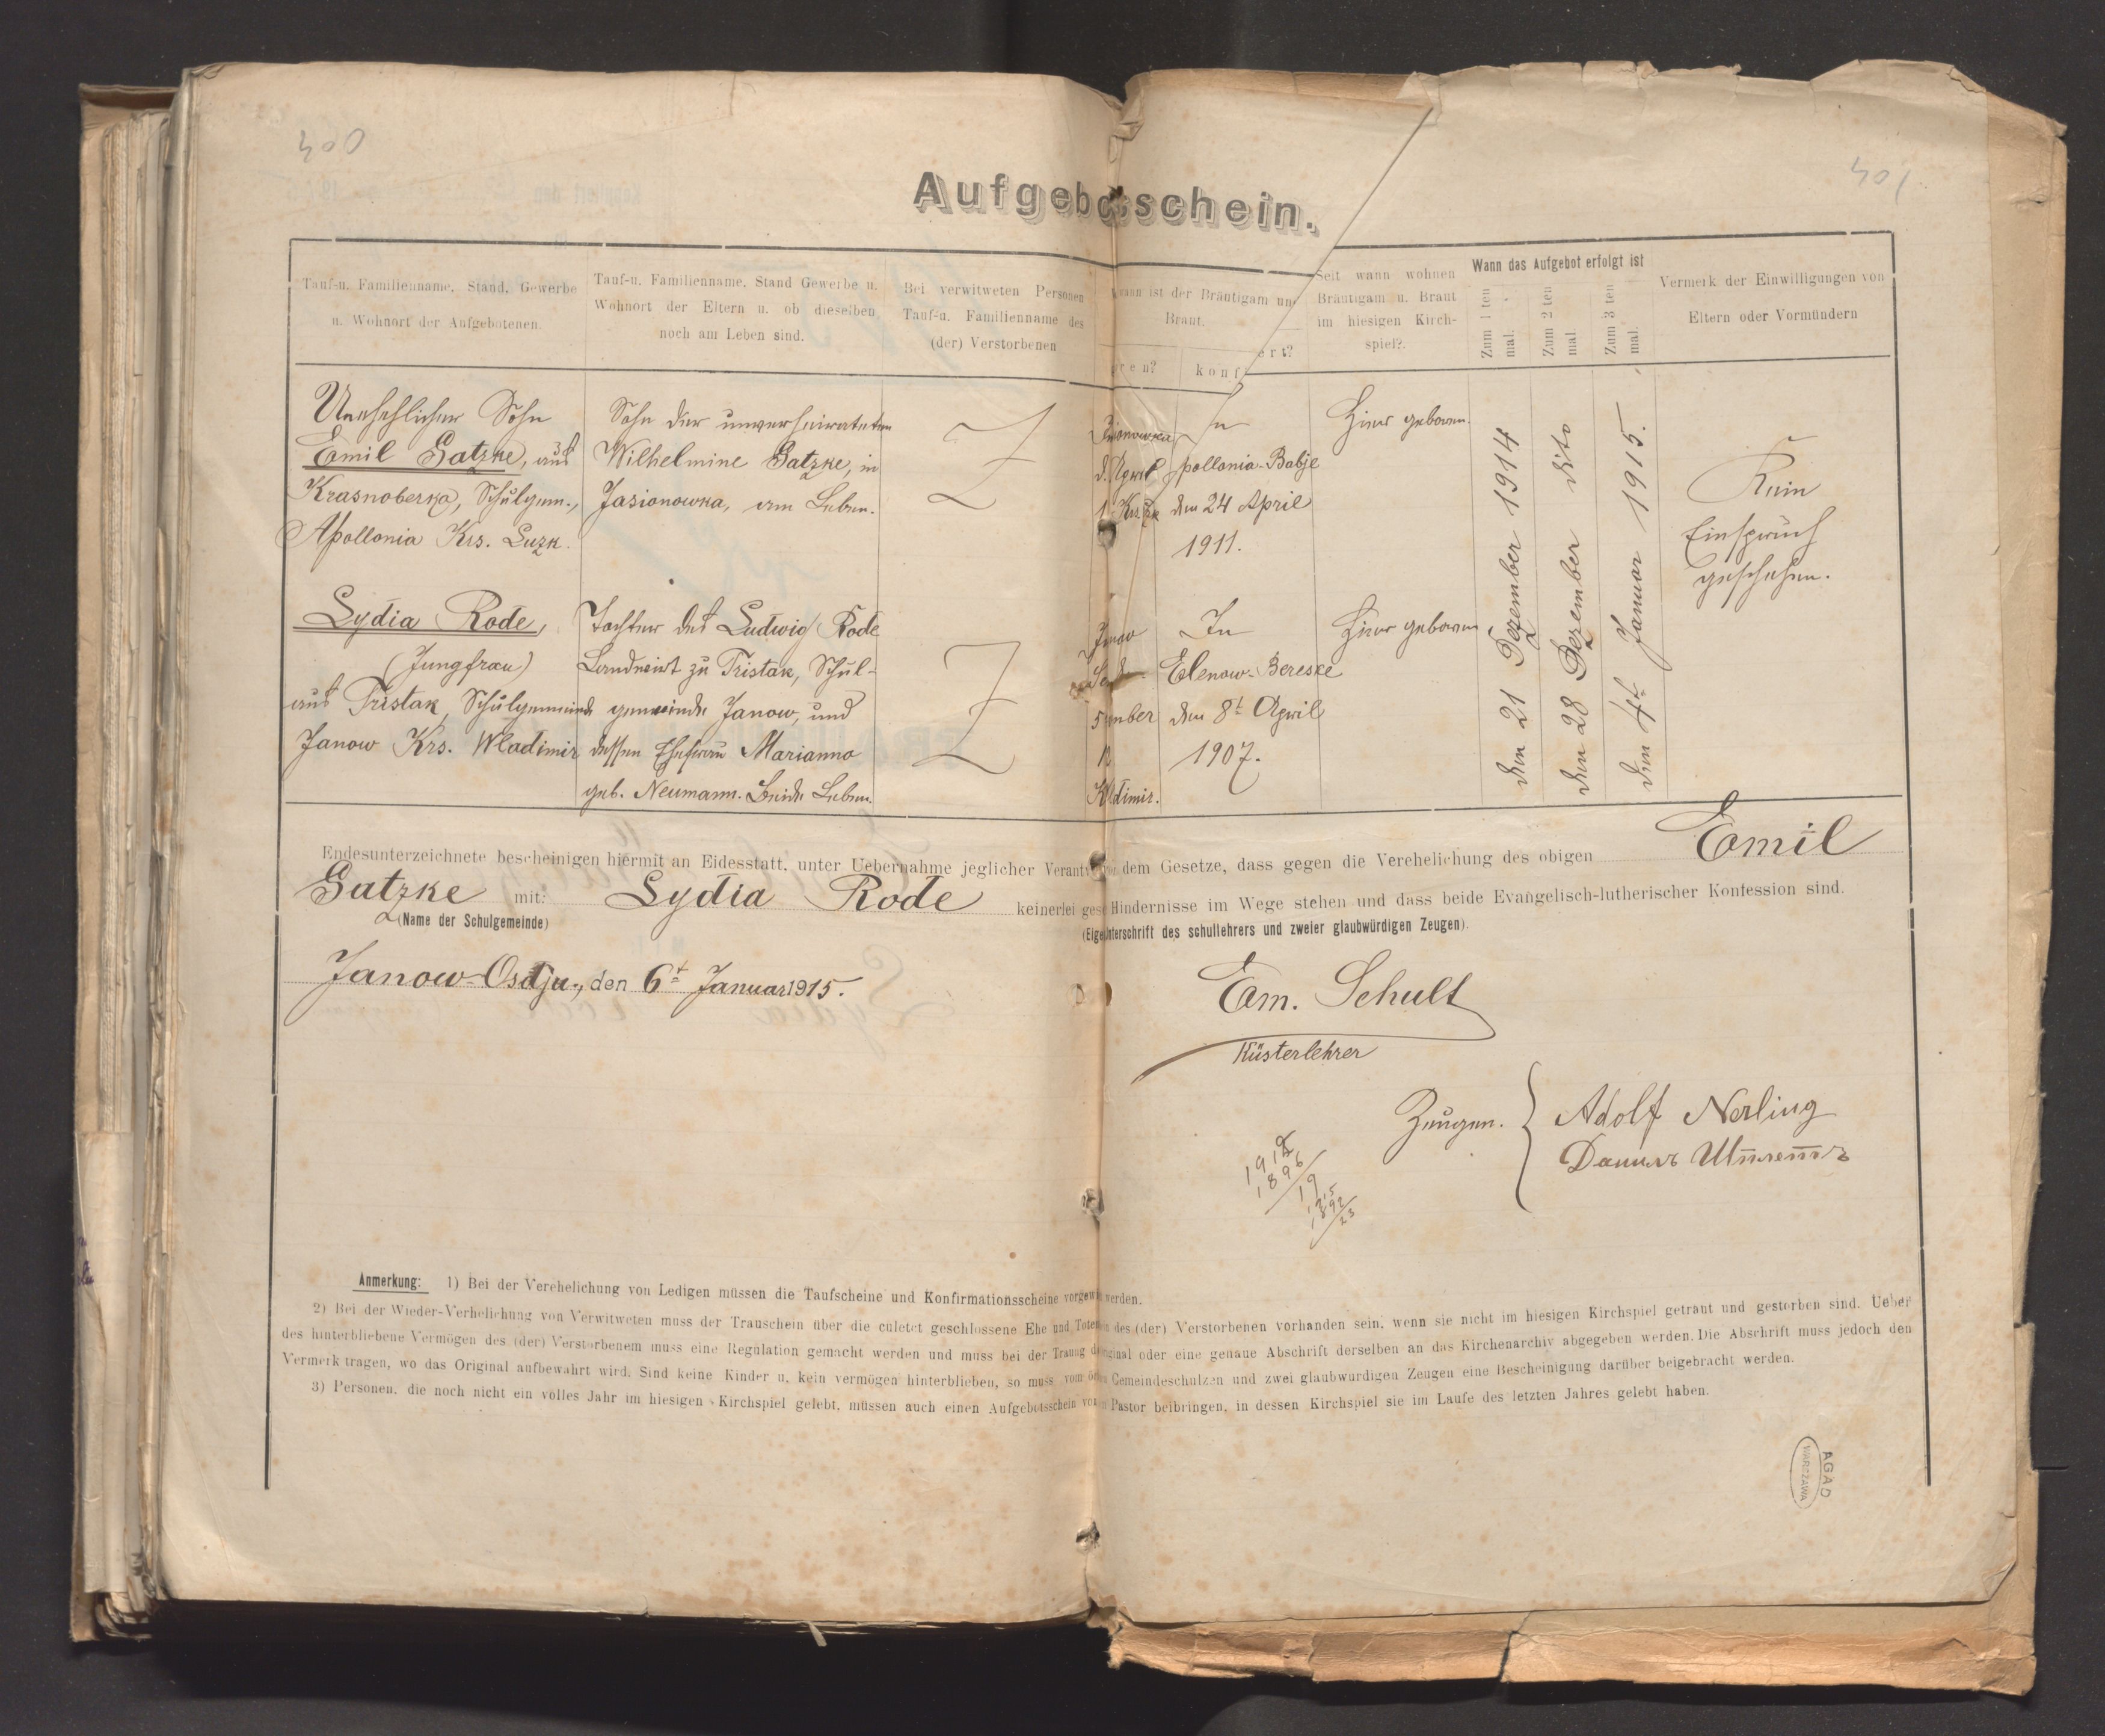 400
401
Aufgebotsschein.
Tauf-u. Familienname, Stand, Gewerbe
u. Wohnort der Aufgebotenen.
Tauf-u. Familienname, Stand Gewerbe u.
Wohnort der Eltern u. ob dieselben
noch am Leben sind.
Bei verwitweten Personen
Tauf-u. Familienname des
(der) Verstorbenen
wann ist der Bräutigam und
Braut.
konf
ert?
Seit wann wohnen
Bräutigam u. Braut
im hiesigen Kirch-
spiel?
Wann das Aufgebot erfolgt ist
Zum 1 ten
mal.
Zum 2 ten
mal
Zum 3 ten
mal.
Vermerk der Einwilligungen von
Eltern oder Vormündern
Unehehlicher Sohn
Emil Gatzke, aus
Krasnoberka, Schulgem.,
Apollonia Krs. Luzk.
Sohn der unverheirateten
Wilhelmine Gatzke, in
Jasionowka, am Leben.
In
pollonia-Babje
den 24 April
1911.
Hier geboren.
Lydia Rode,
(Jungfrau)
aus Tristak, Schulgemeinde
Janow Krs. Wladimir
Tochter des Ludwig Rode
Landwirt zu Tristak, Schul-
gemeinde Janow, und
dessen Ehefrau Marianna
geb. Neumann. Beide Leben.
In
Elenow-Bereske
den 8t April
1907.
Hier geboren
den 21 Dezember 1914
den 28 Dezember dito
den 4t Januar 1915.
Kein
Einspruch
geschehen.
Endesunterzeichnete bescheinigen hiermit an Eidesstatt, unter Uebernahme jeglicher Verantw dem Gesetze, dass gegen die Verehelichung des obigen Emil
Gatzke mit: Lydia Rode keinerlei ges Hindernisse im Wege stehen und dass beide Evangelisch-lutherischer Konfession sind.
(Name der Schulgemeinde)
(Eige nterschrift des schullehrers und zweier glaubwürdigen Zeugen).
Janow-Osdju., den 6t Januar 1915.
Em. Schult
Küsterlehrer
Zeugen.
Adolf Nerling
Данилъ
1896
19
1892
23
Anmerkung: 1) Bei der Verehelichung von Ledigen müssen die Taufscheine und Konfirmationsscheine vorgewi werden.
2) Bei der Wieder-Verhelichung von Verwitweten muss der Trauschein über die culetct geschlossene Ehe und Toten des (der) Verstorbenen vorhanden sein, wenn sie nicht im hiesigen Kirchspiel getraut und gestorben sind. Ueber
des hinterbliebene Vermögen des (der) Verstorbenem muss eine Regulation gemacht werden und muss bei der Traung d riginal oder eine genaue Abschrift derselben an das Kirchenarchiv abgegeben werden. Die Abschrift muss jedoch den
Vermerk tragen, wo das Original aufbewahrt wird. Sind keine Kinder u. kein vermögen hinterblieben, so muss vom ört Gemeindeschulzen und zwei glaubwurdigen Zeugen eine Bescheinigung darüber beigebracht werden.
3) Personen, die noch nicht ein volles Jahr im hiesigen Kirchspiel gelebt, müssen auch einen Aufgebotsschein vo Pastor beibringen, in dessen Kirchspiel sie im Laufe des letzten Jahres gelebt haben.
AGAD
WARSZAWA